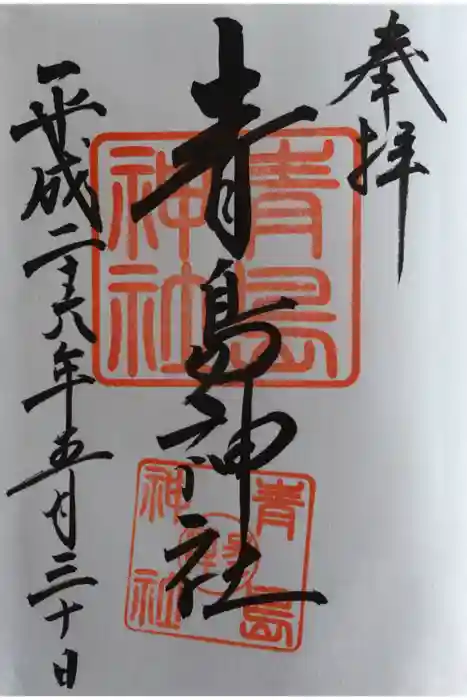 奉拝
青島神社
平成二十八年五月三十日
青島
神社
青島
神社